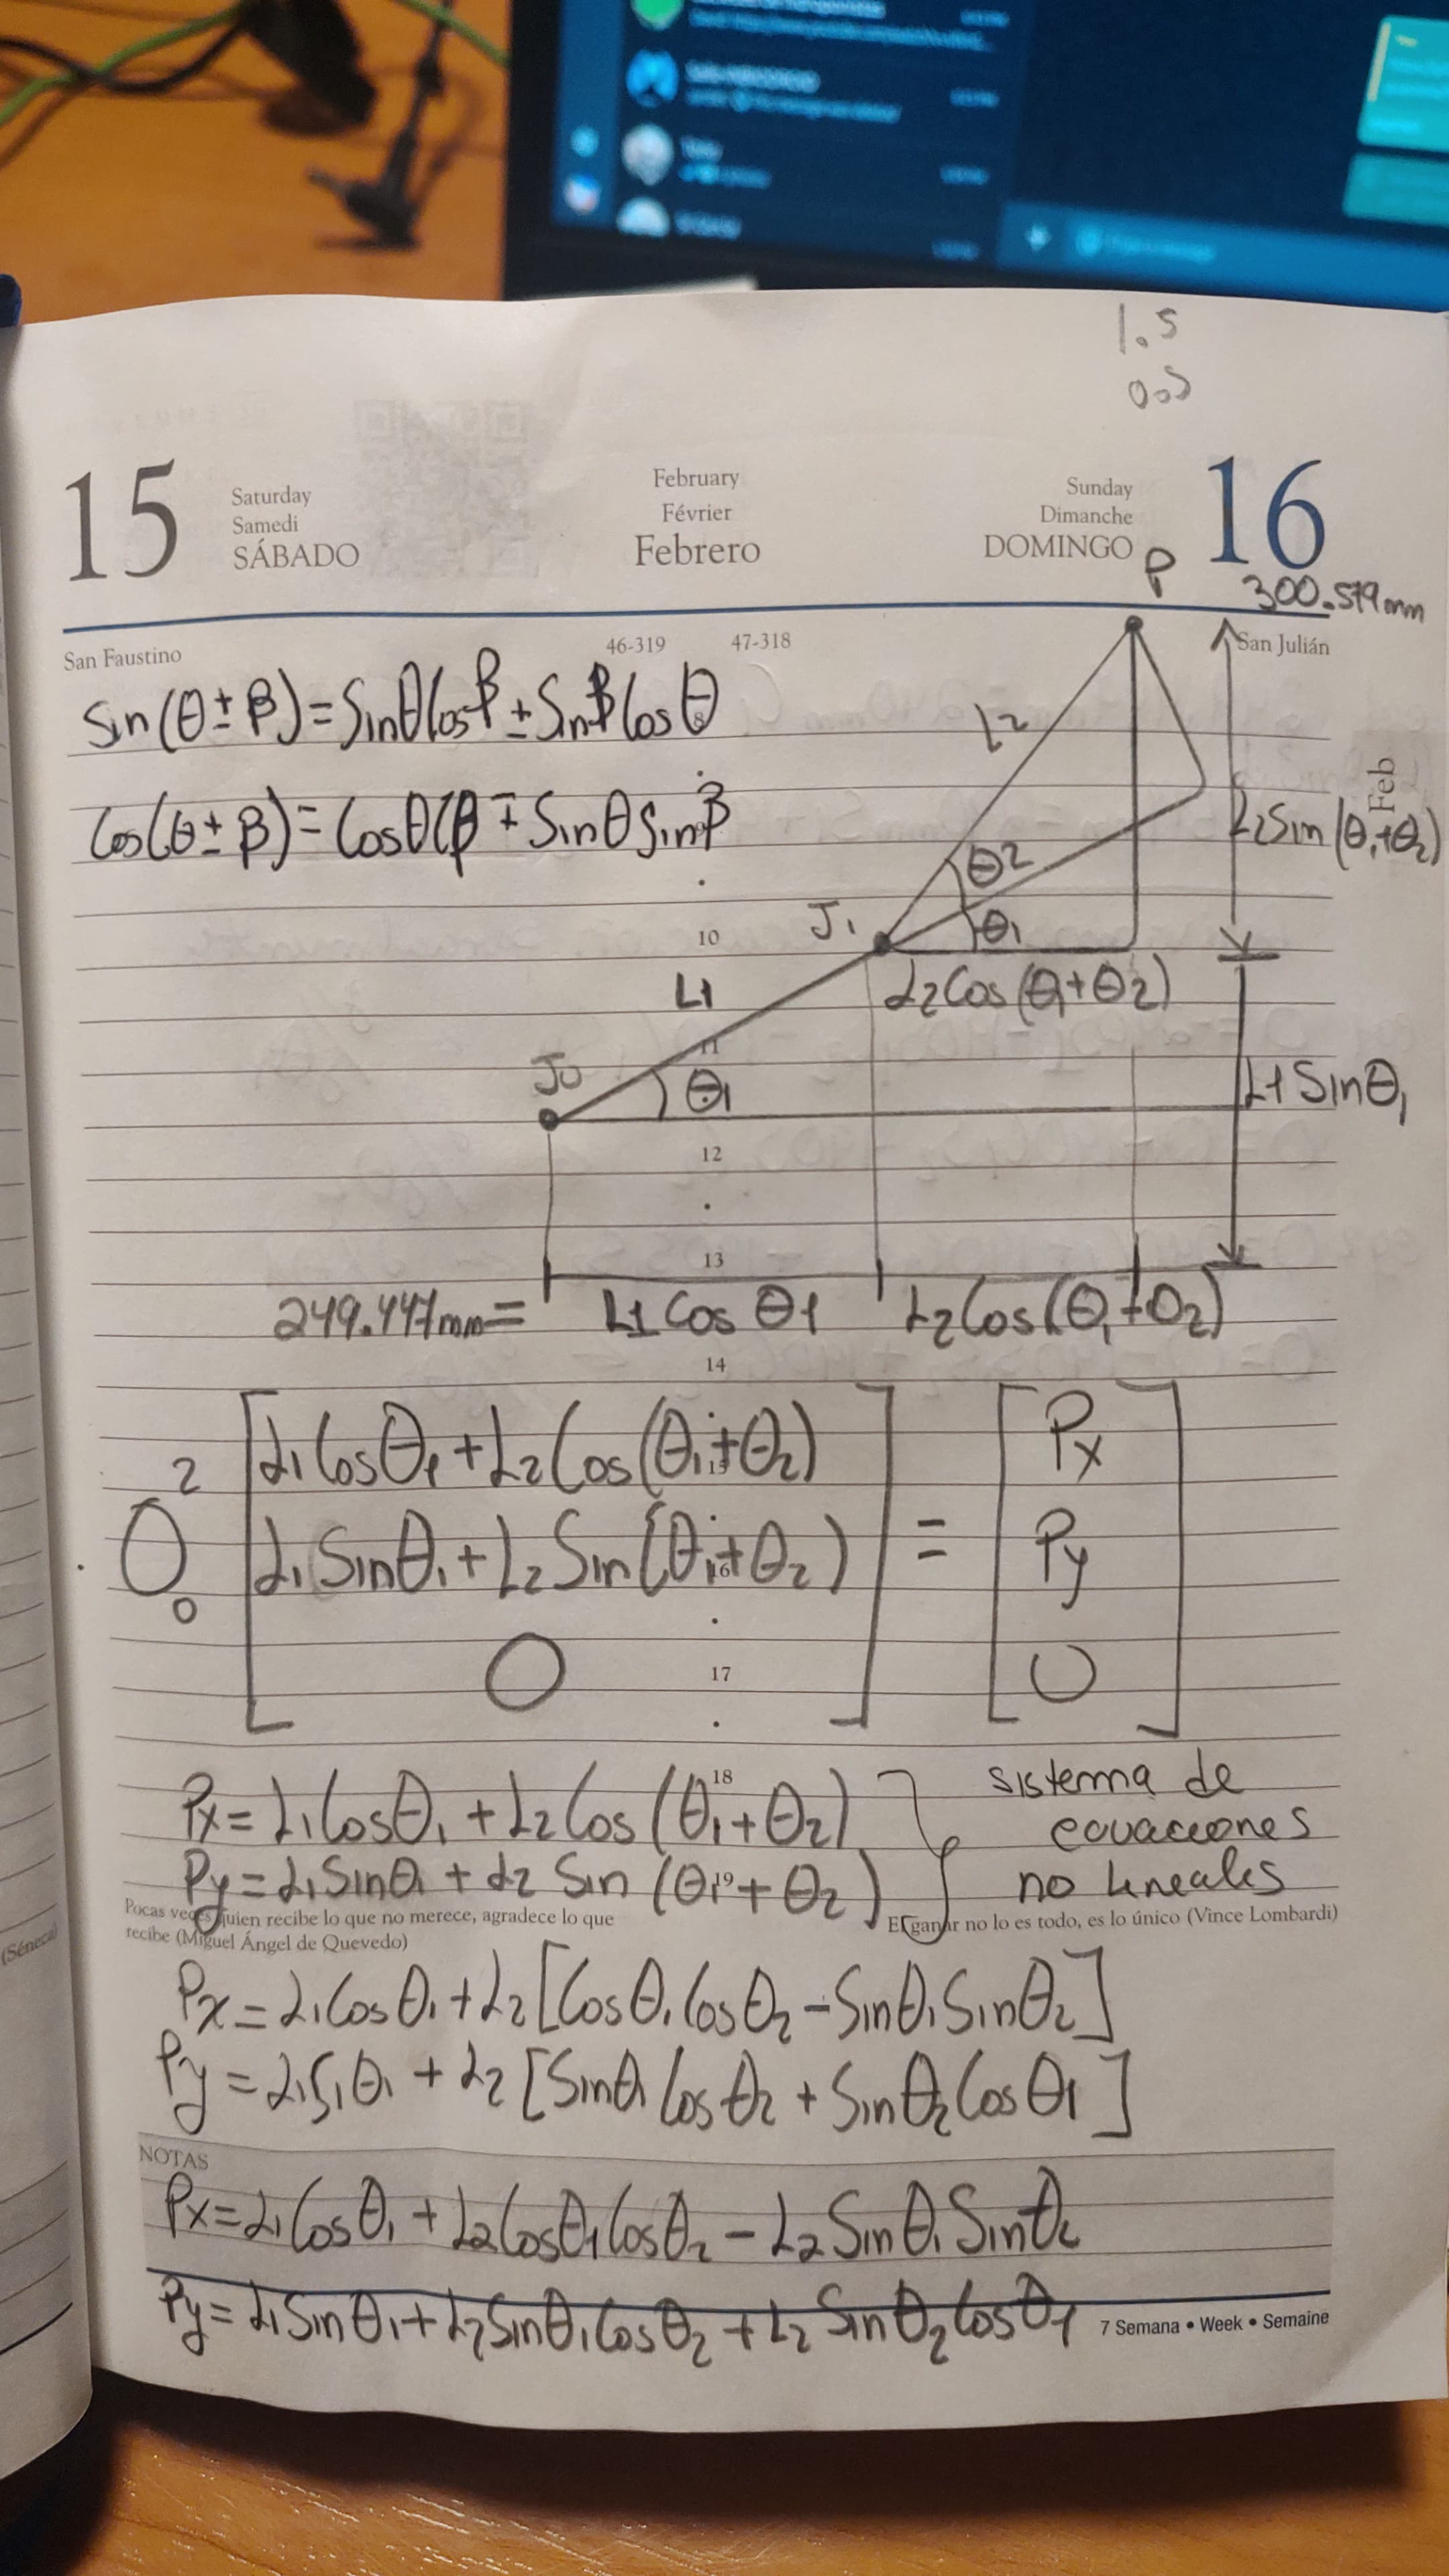 1.5
0.5
15
Saturday
Samedi
SÁBADO
February
Février
Febrero
Sunday
Dimanche
DOMINGO
16
P
300.579mm
San Faustino
46-319
47-318
San Julián
Sin(θ±β)=SinθCosβ±SinβCosθ
Cos(θ±β)=CosθCβ∓SinθSinβ
Feb
L2
L2Sin(θ1+θ2)
θ2
J1
θ1
10
L2Cos(θ1+θ2)
L1
11
J0
θ1
L1Sinθ1
12
13
249.447mm= L1Cosθ1 L2Cos(θ1+θ2)
14
L1Cosθ1+L2Cos(θ1+θ2)
Px
2
15
O
L1Sinθ1+L2Sin(θ1+θ2)
=
Py
16
0
0
0
17
18
Px=L1Cosθ1+L2Cos(θ1+θ2)
sistema de
ecuaciones
Py=L1Sinθ1+L2Sin(θ1+θ2)
no lineales
19
Pocas veces quien recibe lo que no merece, agradece lo que
recibe (Miguel Ángel de Quevedo)
El ganar no lo es todo, es lo único (Vince Lombardi)
(Séneca)
Px=L1Cosθ1+L2[Cosθ1Cosθ2-Sinθ1Sinθ2]
Py=L1S1θ1+L2[Sinθ1Cosθ2+Sinθ2Cosθ1]
NOTAS
Px=L1Cosθ1+L2Cosθ1Cosθ2-L2Sinθ1Sinθ2
Py=L1Sinθ1+L2Sinθ1Cosθ2+L2Sinθ2Cosθ1
7 Semana • Week • Semaine